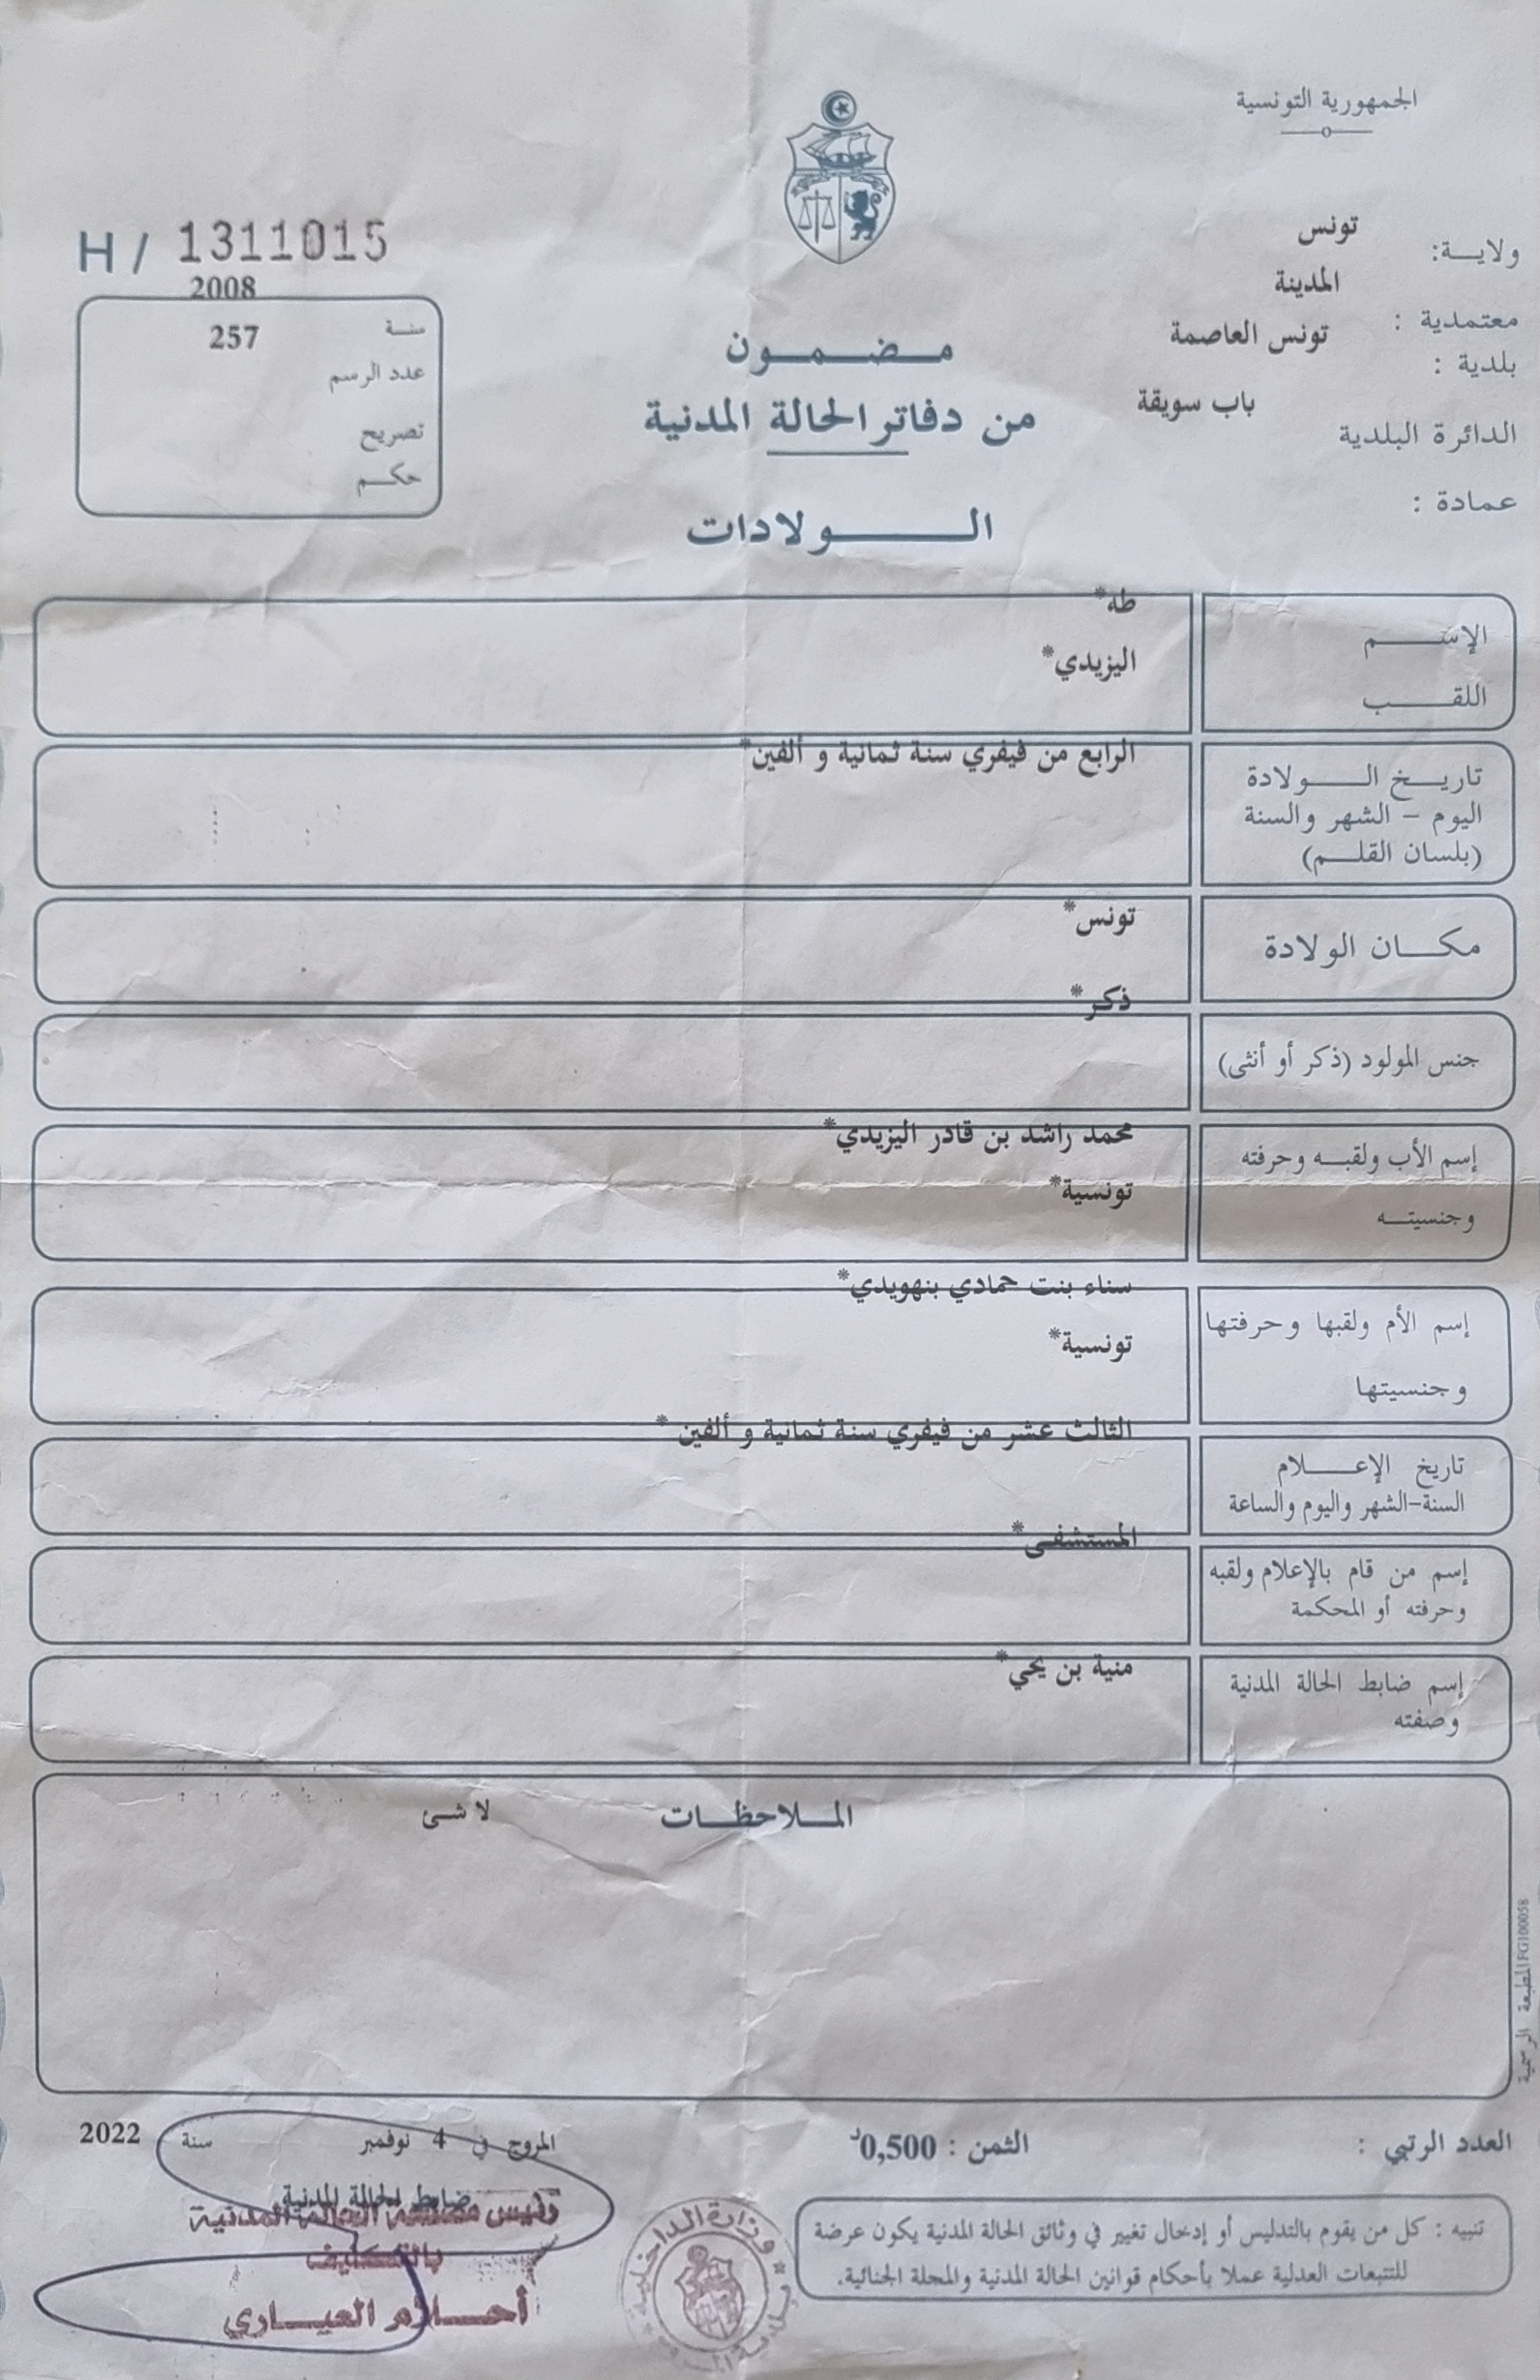 الجمهورية التونسية
ولايـــة: تونس
معتمدية : المدينة
بلدية : تونس العاصمة
الدائرة البلدية باب سويقة
عمادة :
مـضـمـون
من دفاتر الحالة المدنية
الـولادات
H / 1311015
سنة 2008
عدد الرسم 257
تصريح
حكم
الإسم طه*
اللقب اليزيدي*
تاريخ الولادة الرابع من فيفري سنة ثمانية و ألفين*
اليوم - الشهر والسنة
(بلسان القلم)
مكان الولادة تونس*
جنس المولود (ذكر أو أنثى) ذكر*
إسم الأب ولقبه وحرفته محمد راشد بن قادر اليزيدي*
وجنسيته تونسية*
إسم الأم ولقبها وحرفتها سناء بنت حمادي بنهويدي*
وجنسيتها تونسية*
تاريخ الإعلام الثالث عشر من فيفري سنة ثمانية و ألفين *
السنة-الشهر واليوم والساعة
إسم من قام بالإعلام ولقبه المستشفى*
وحرفته أو المحكمة
إسم ضابط الحالة المدنية منية بن يحي*
وصفته
الملاحظات لا شئ
المطبعة الرسمية FG100058
العدد الرتبي :
الثمن : 0,500د
المروج في 4 نوفمبر سنة 2022
ضابط الحالة المدنية
رئيس مصلحة الحالة المدنية
بالتكليف
أحلام العياري
وزارة الداخلية
تنبيه : كل من يقوم بالتدليس أو إدخال تغيير في وثائق الحالة المدنية يكون عرضة
للتتبعات العدلية عملا بأحكام قوانين الحالة المدنية والمجلة الجنائية.